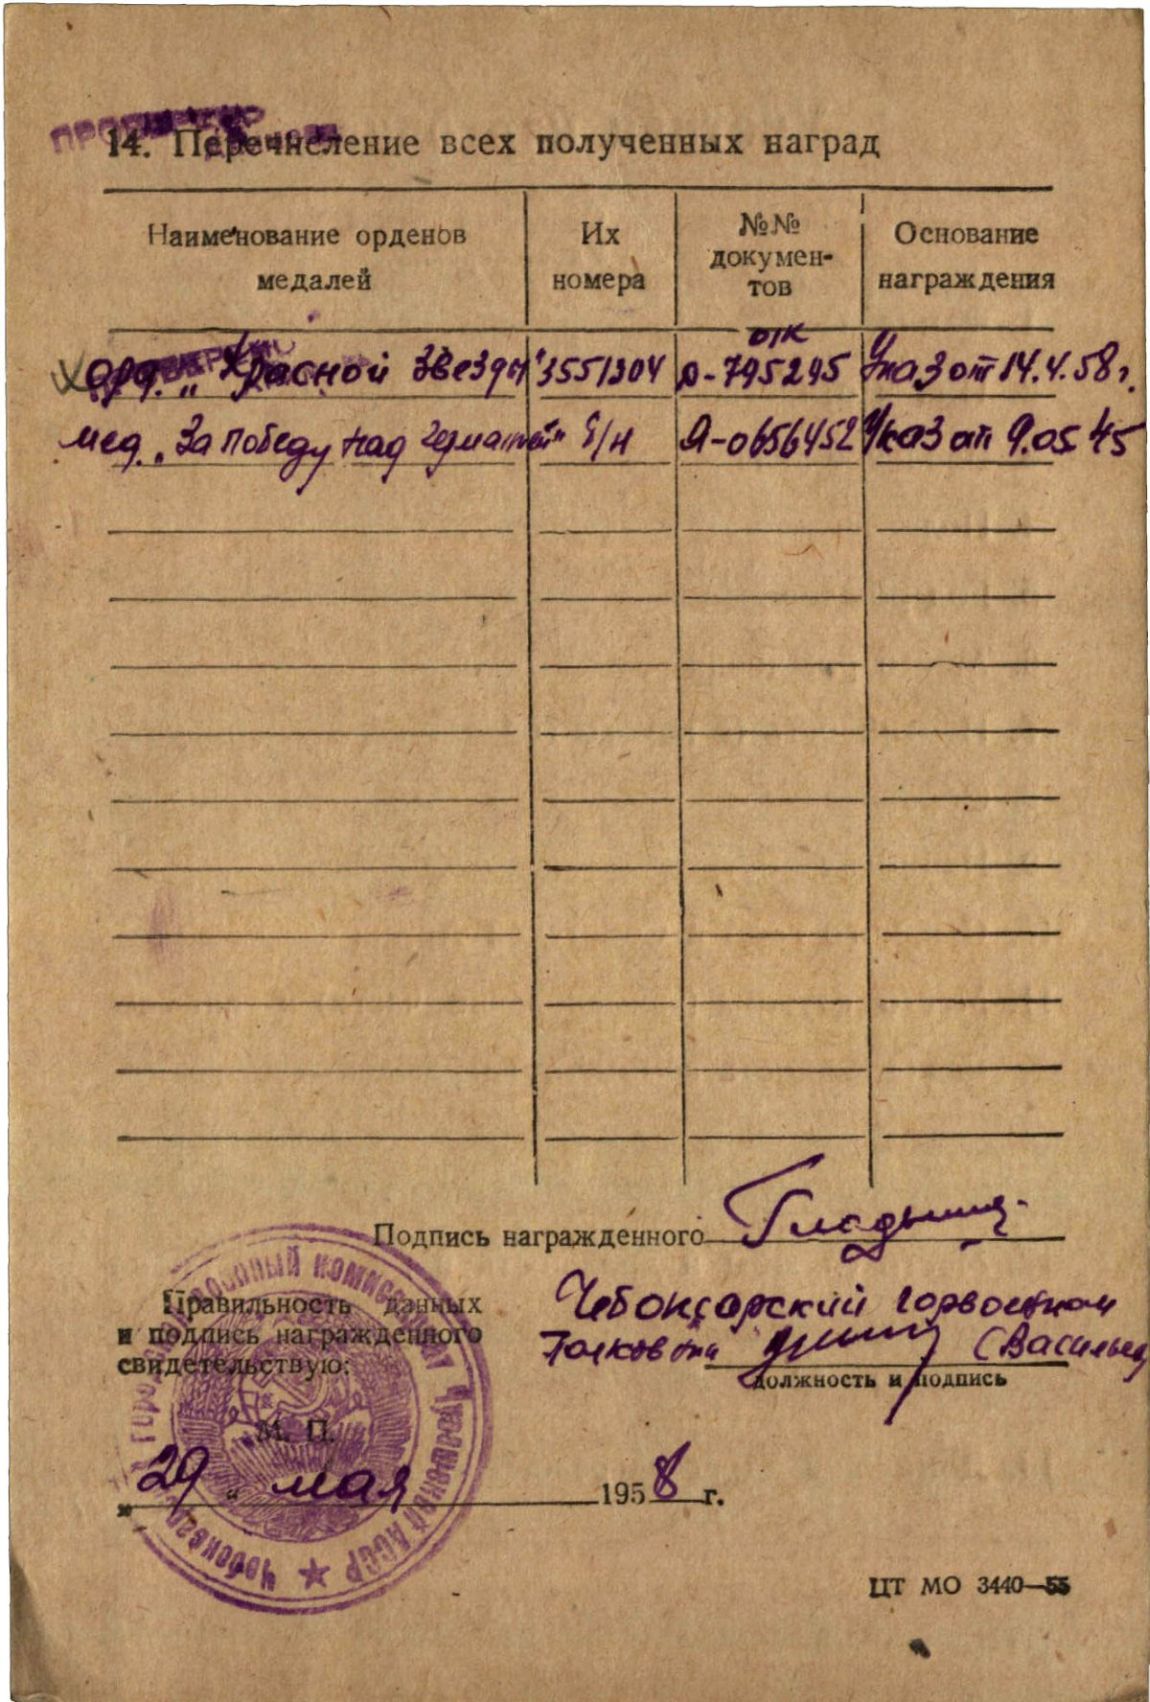 14. Перечисление всех полученных наград
Наименование орденов
медалей
Их
номера
№№
докумен-
тов
Основание
награждения
орд. „Красной Звезды" 3551304 О-795295 Указ от 14.4.58 г.
мед. „За победу над Германией" б/н Я-0656452 Указ от 9.05 45
Подпись награжденного
Правильность данных
и подпись награжденного
свидетельствую:
Чебоксарский горвоенком
(Васильев
должность и подпись
М. П.
„29" мая 1958 г.
Чебоксарский городской военный комиссариат Чувашской АССР
ЦТ МО 3440—55